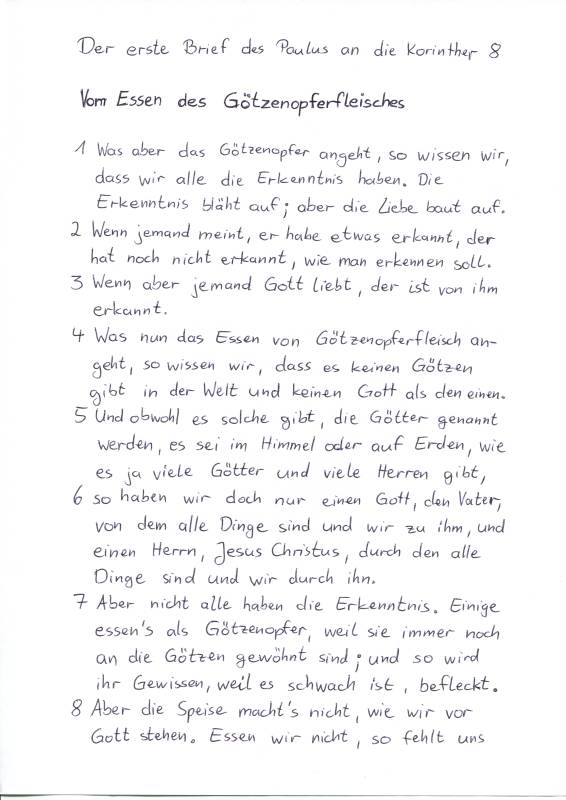 Der erste Brief des Paulus an die Korinther 8
Vom Essen des Götzenopferfleisches
1 Was aber das Götzenopfer angeht, so wissen wir,
dass wir alle die Erkenntnis haben. Die
Erkenntnis bläht auf; aber die Liebe baut auf.
2 Wenn jemand meint, er habe etwas erkannt, der
hat noch nicht erkannt, wie man erkennen soll.
3 Wenn aber jemand Gott liebt, der ist von ihm
erkannt.
4 Was nun das Essen von Götzenopferfleisch an-
geht, so wissen wir, dass es keinen Götzen
gibt in der Welt und keinen Gott als den einen.
5 Und obwohl es solche gibt, die Götter genannt
werden, es sei im Himmel oder auf Erden, wie
es ja viele Götter und viele Herren gibt,
6 so haben wir doch nur einen Gott, den Vater,
von dem alle Dinge sind und wir zu ihm, und
einen Herrn, Jesus Christus, durch den alle
Dinge sind und wir durch ihn.
7 Aber nicht alle haben die Erkenntnis. Einige
essen's als Götzenopfer, weil sie immer noch
an die Götzen gewöhnt sind; und so wird
ihr Gewissen, weil es schwach ist, befleckt.
8 Aber die Speise macht's nicht, wie wir vor
Gott stehen. Essen wir nicht, so fehlt uns